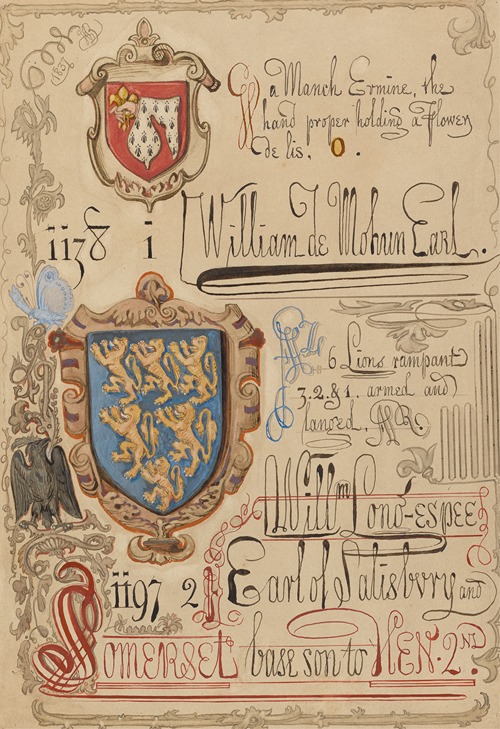 1837
G a Manch Ermine, the
hand proper holding a Flower
de lis. O.
1138 1 William de Mohun Earl.
AZ 6 Lions rampant
3, 2, & 1. armed and
langed,
Willm Long-espee
1197 2 Earl of Salisbury and
SOMERSET base son to HEN. 2ND.